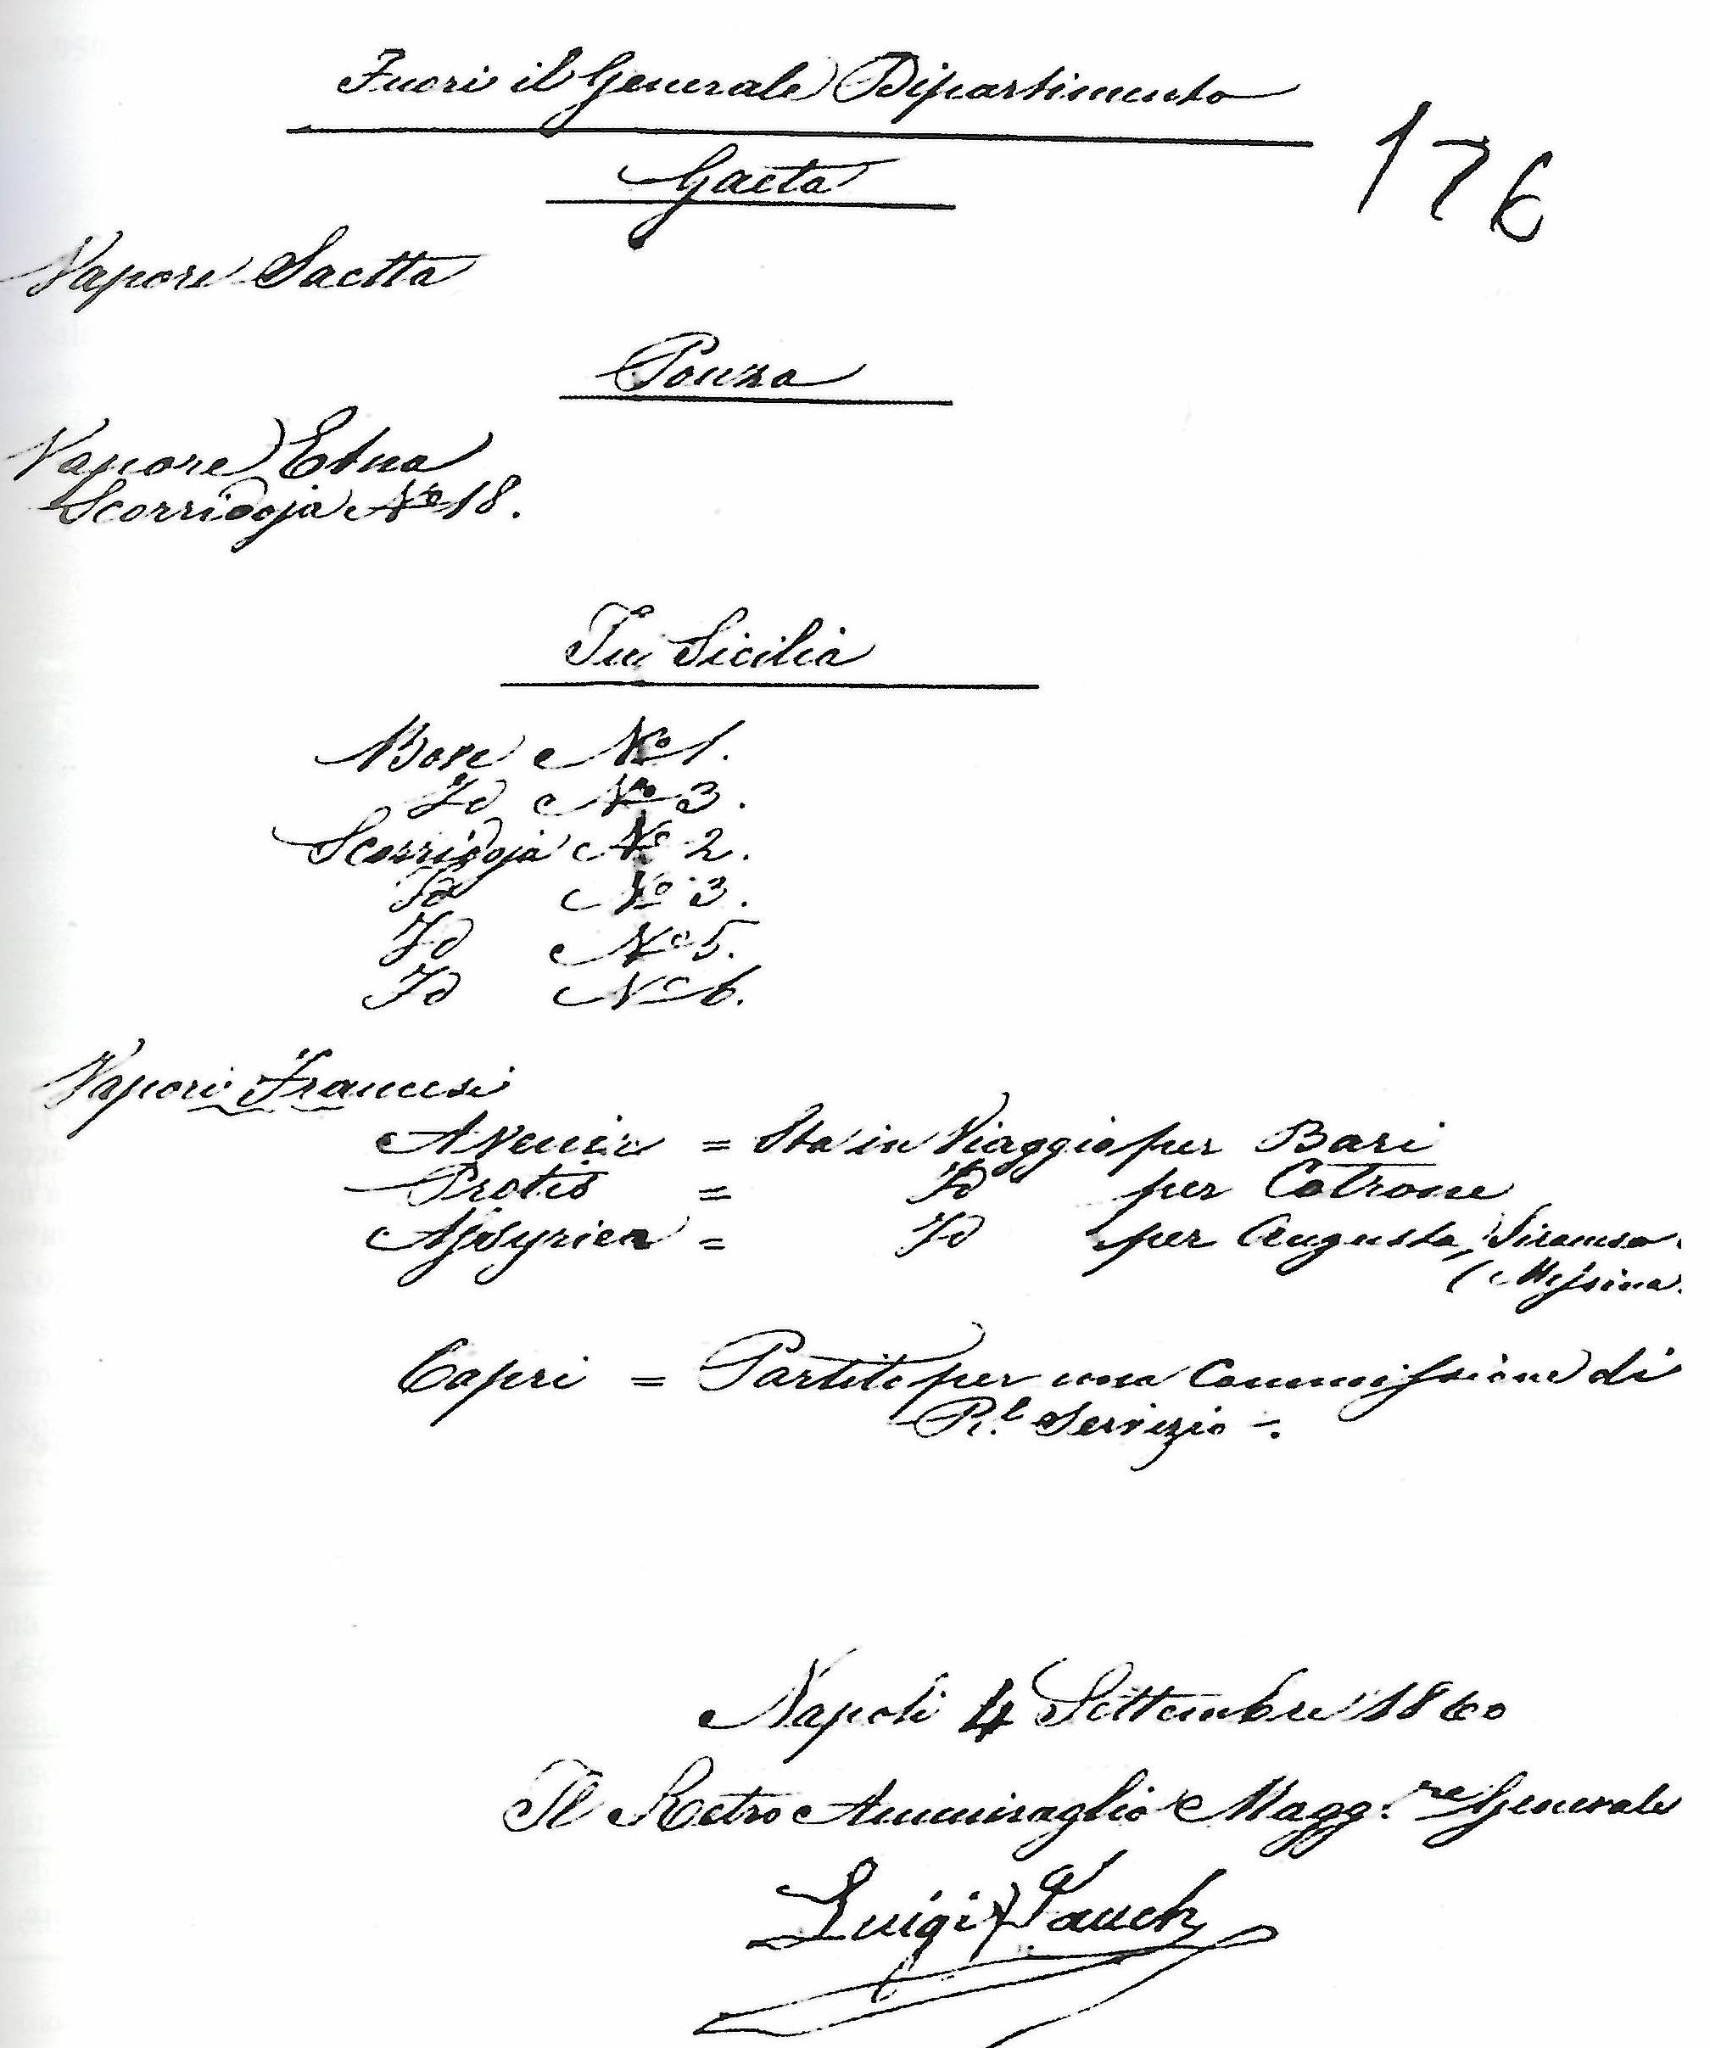 Fuori il Generale Dipartimento
176
Gaeta
Vapore Saetta
Ponza
Vapore Etna
Scorridoja No 18.
In Sicilia
Bove No 1.
Id No 3.
Scorridoja No 2.
Id No 3.
Id No 5.
Id No 6.
Vapori Francesi
Avenir = Sta in Viaggio per Bari
Protis = Id per Cotrone
Assyrien = Id per Augusta, Siracusa
(Messina.
Capri = Partito per una Commissione di
Rl. Servizio =.
Napoli 4 Settembre 1860
Il Retro Ammiraglio Magg.re Generale
Luigi